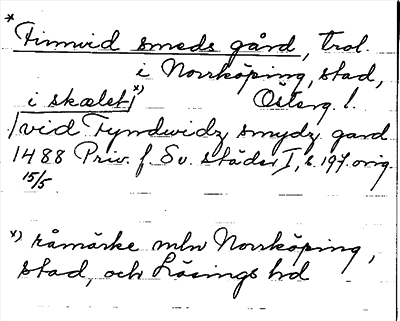 * Finnvid smeds gård, trol.
i Norrköping, stad,
i skælet *) Österg. l.
/vid Fyndwidz smydz gard
1488 Priv. f. Sv. städer I, s. 197. orig.
15/5
*) råmärke mln Norrköping,
stad, och Lösings hd